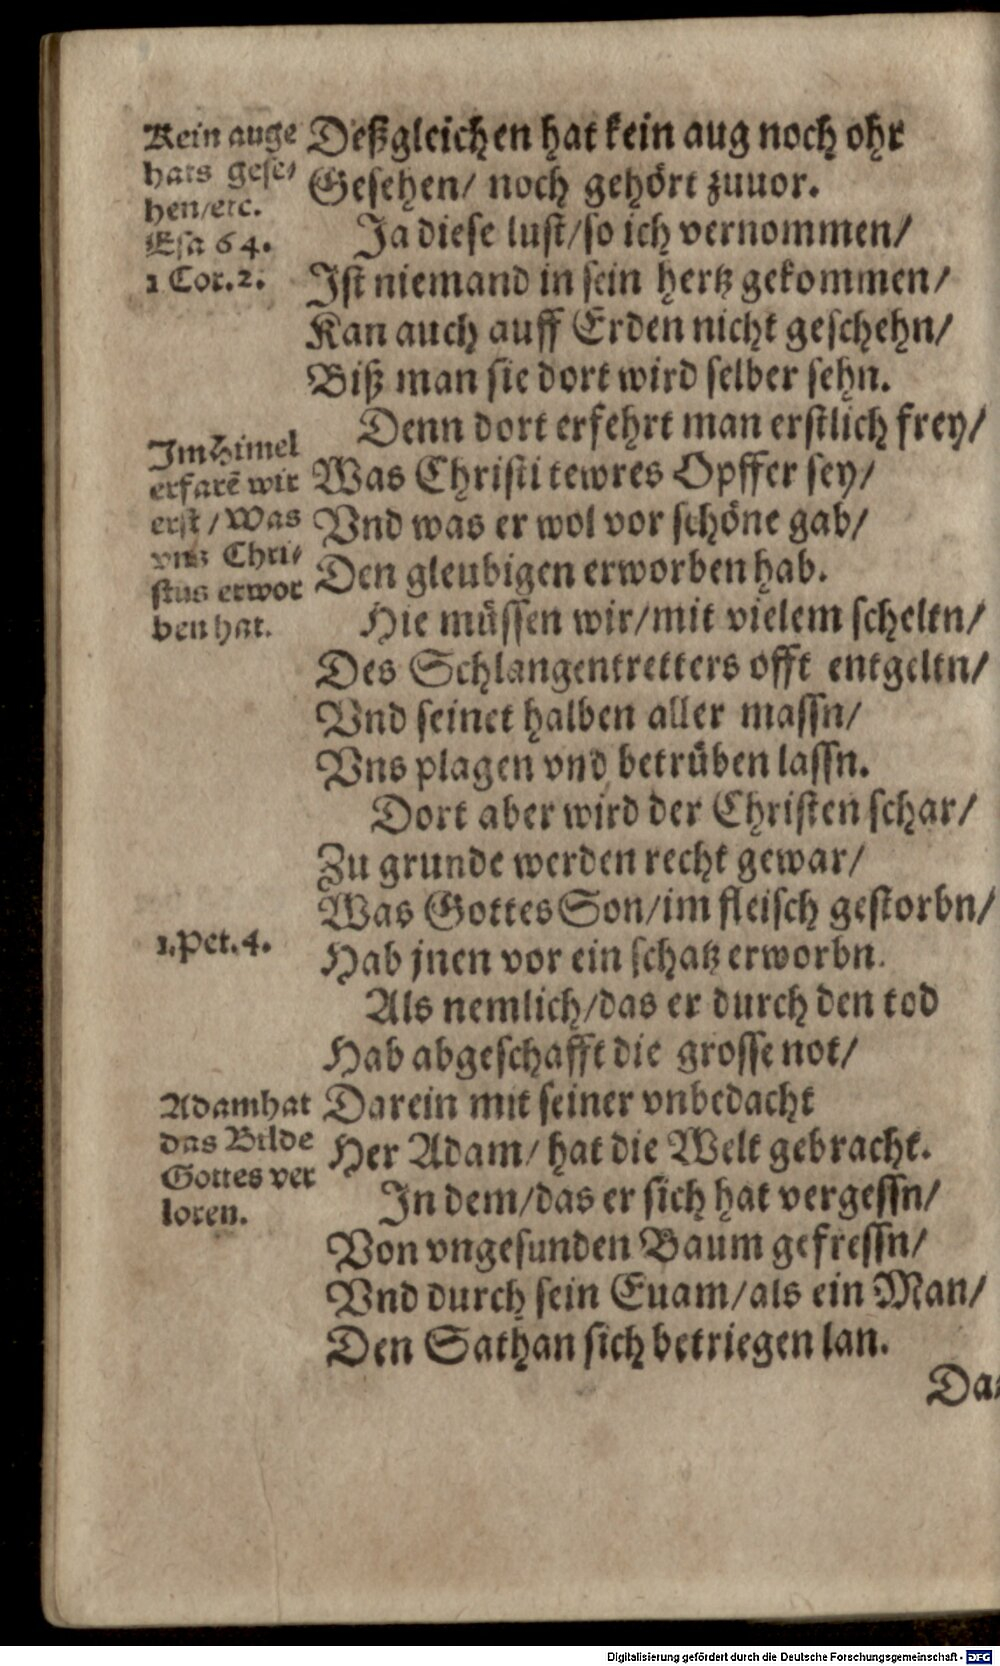 Kein auge
hats gese-
hen/etc.
Esa 64.
1 Cor. 2.
Deßgleichen hat kein aug noch ohr
Gesehen/ noch gehört zuuor.
Ja diese lust/so ich vernommen/
Ist niemand in sein hertz gekommen/
Kan auch auff Erden nicht geschehn/
Biß man sie dort wird selber sehn.
Im Himel
erfarē wir
erst/Was
vns Chri-
stus erwor
ben hat.
Denn dort erfehrt man erstlich frey/
Was Christi tewres Opffer sey/
Vnd was er wol vor schöne gab/
Den gleubigen erworben hab.
Hie müssen wir/mit vielem scheltn/
Des Schlangentretters offt entgeltn/
Vnd seinet halben aller massn/
Vns plagen vnd betrüben lassn.
Dort aber wird der Christen schar/
Zu grunde werden recht gewar/
Was Gottes Son/im fleisch gestorbn/
1. Pet. 4.
Hab jnen vor ein schatz erworbn.
Als nemlich/das er durch den tod
Hab abgeschafft die grosse not/
Adam hat
das Bilde
Gottes ver
loren.
Darein mit seiner vnbedacht
Her Adam/ hat die Welt gebracht.
In dem/das er sich hat vergessn/
Von vngesunden Baum gefressn/
Vnd durch sein Euam/als ein Man/
Den Sathan sich betriegen lan.
Da-
Digitalisierung gefördert durch die Deutsche Forschungsgemeinschaft - DFG